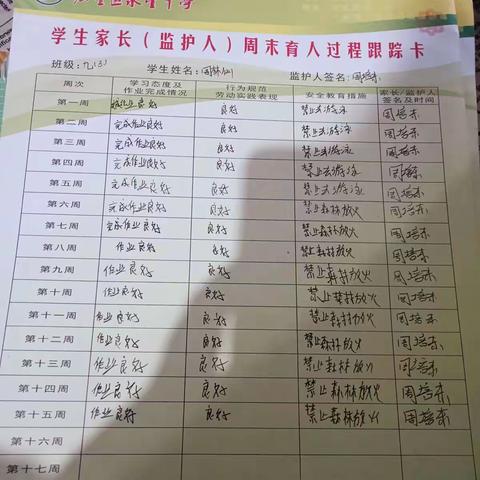 学生家长（监护人）周末育人过程跟踪卡
班级：九(3) 学生姓名： 监护人签名：周培东
周次 学习态度及作业完成情况 行为规范劳动实践表现 安全教育措施 家长/监护人签名及时间
第一周 作业良好 良好 禁止去游泳 周培东
第二周 完成作业良好 良好 禁止去游泳 周培东
第三周 完成作业良好 良好 禁止去游泳 周培东
第四周 完成作业良好 良好 禁止去游泳 周培东
第五周 完成作业良好 良好 禁止去游泳 周培东
第六周 完成作业良好 良好 禁止森林放火 周培东
第七周 完成作业良好 良好 禁止森林放火 周培东
第八周 作业良好 良好 禁止森林放火 周培东
第九周 作业良好 良好 禁止森林放火 周培东
第十周 作业良好 良好 禁止森林放火 周培东
第十一周 作业良好 良好 禁止森林放火 周培东
第十二周 作业良好 良好 禁止森林放火 周培东
第十三周 作业良好 良好 禁止森林放火 周培东
第十四周 作业良好 良好 禁止森林放火 周培东
第十五周 作业良好 良好 禁止森林放火 周培东
第十六周
第十七周